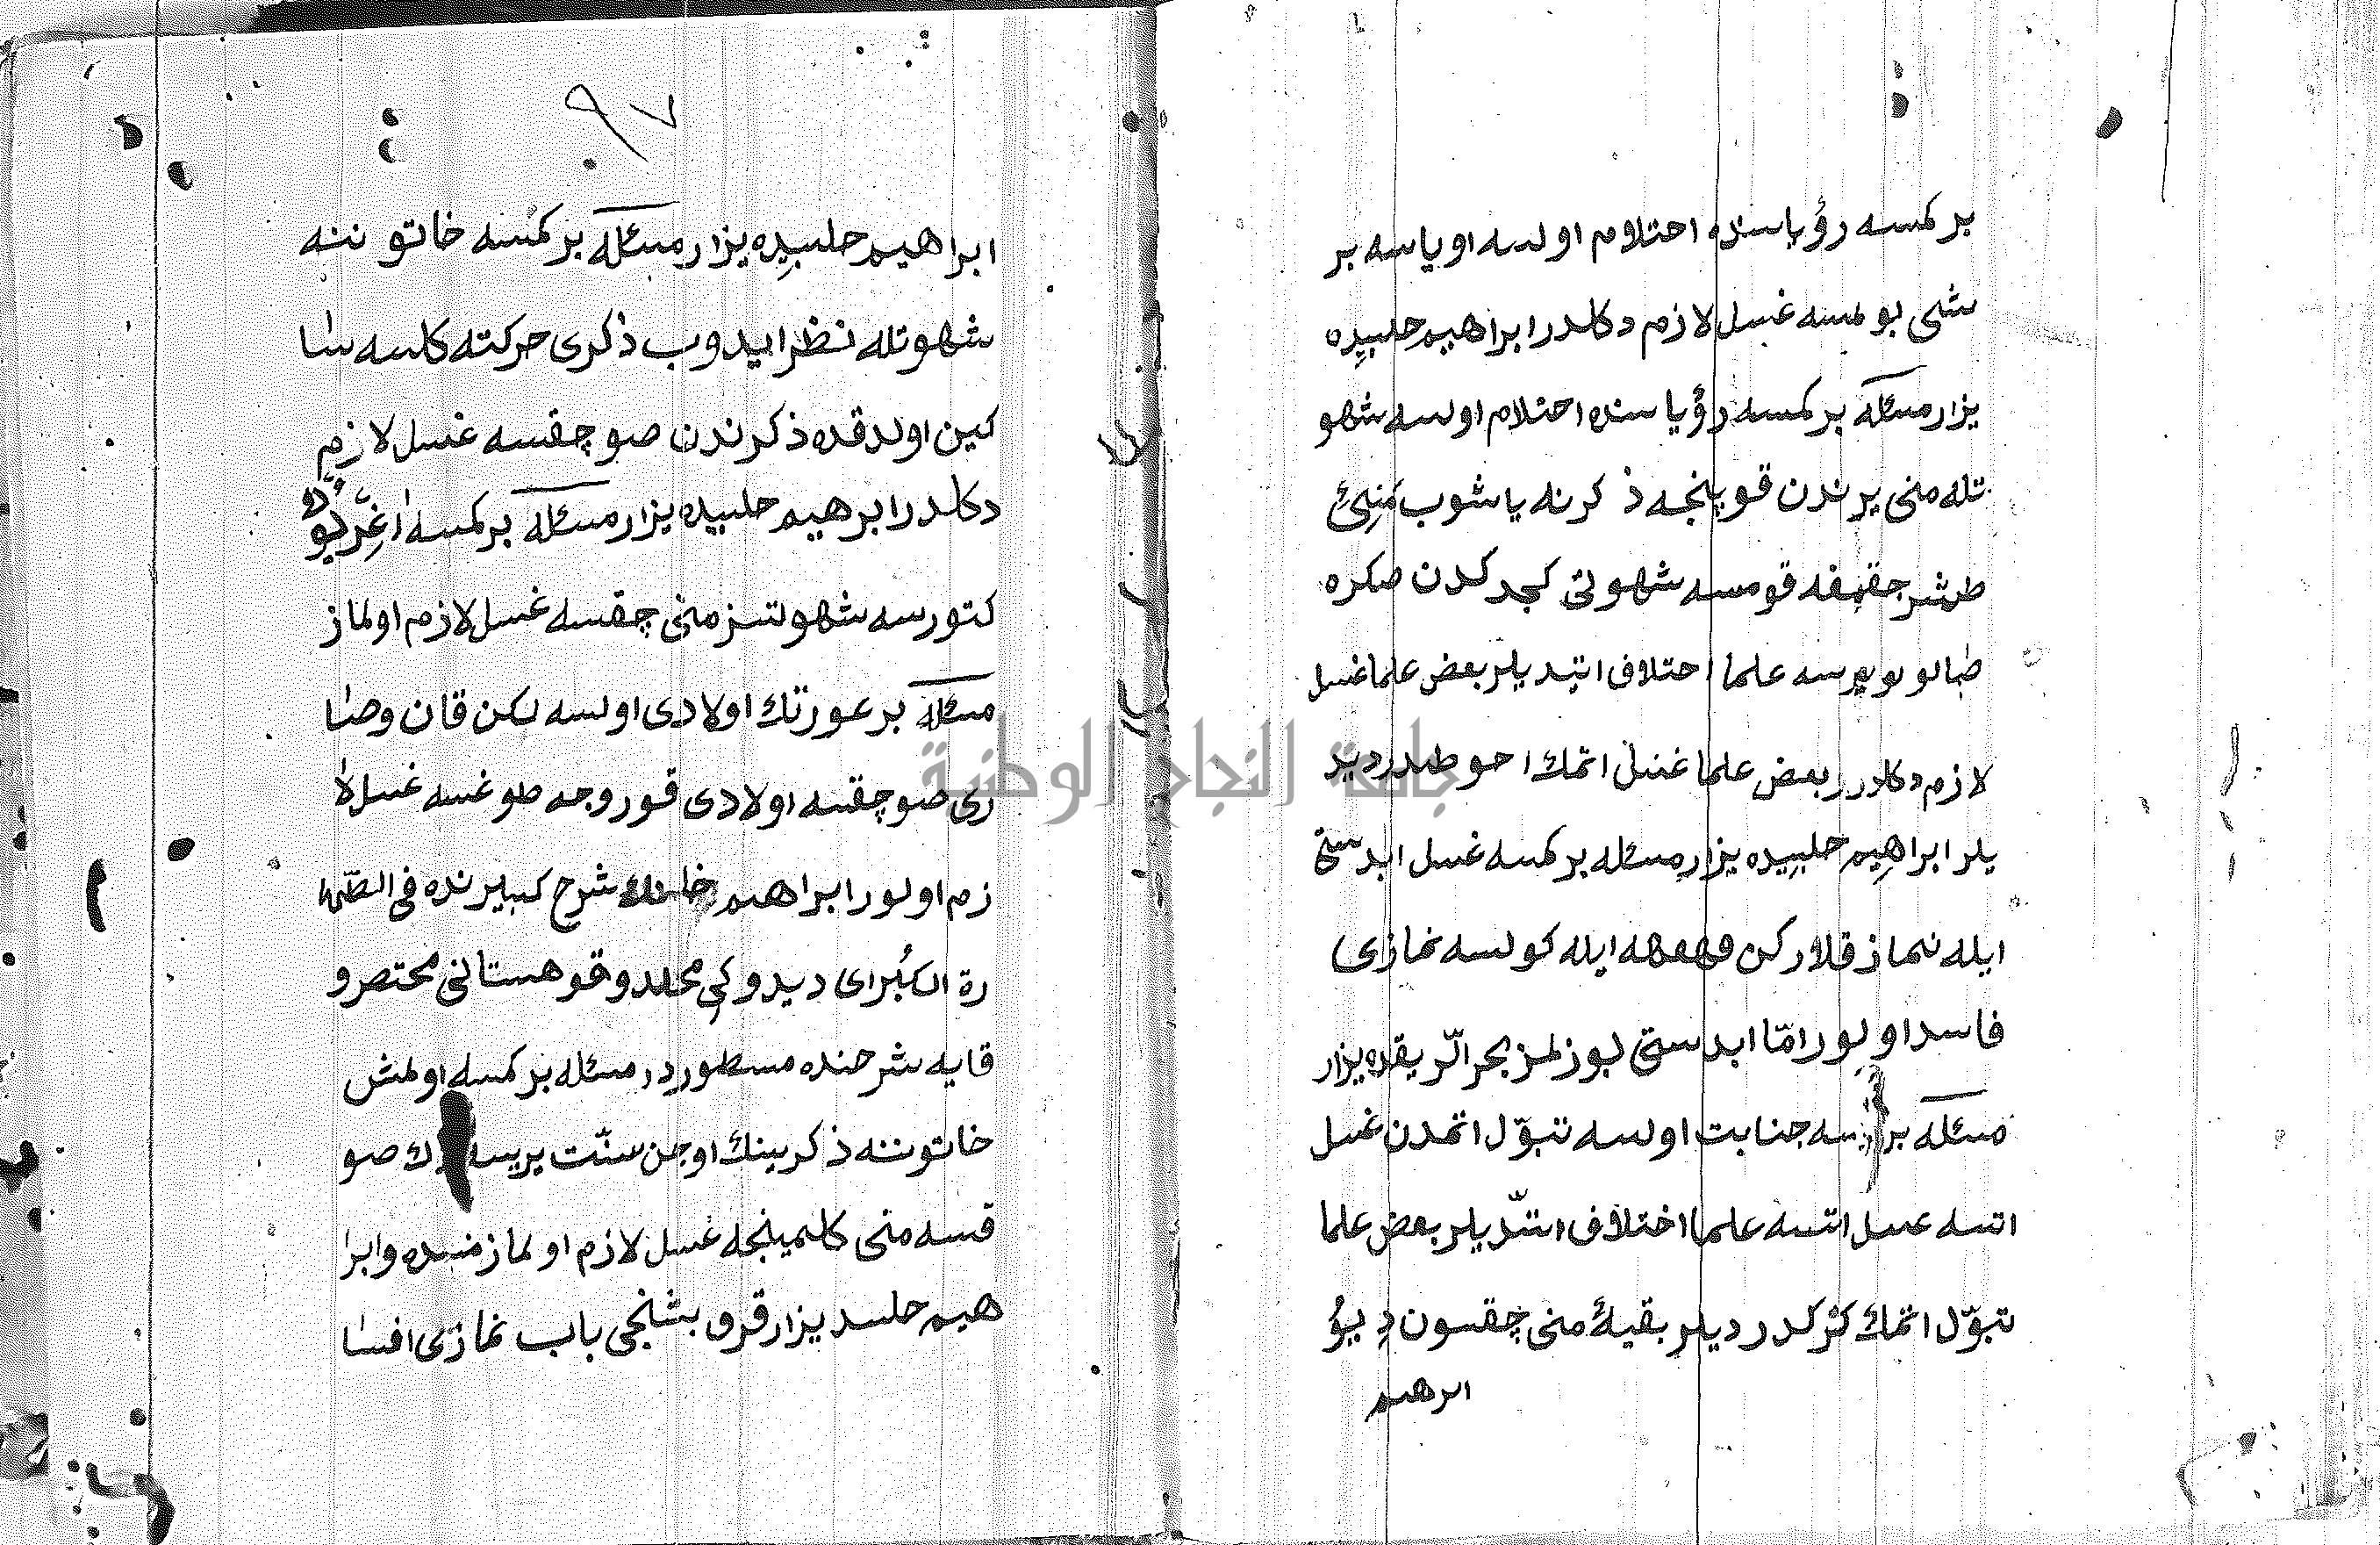 بر كمسه رؤياسنده احتلام اولسه اوياسه بر
شى بولمسه غسل لازم دكلدر ابراهيم حلبيده
يزار مسئله بر كمسه رؤيا سنده احتلام اولسه شهو
تله منى يرندن قوپنجه ذكرنه ياشوب منئ
طشر چقيغه قومسه شهوتى كجدكدن صكره
صالو ويرسه علما احتلاف اتيديلر بعض علما غسل
لازم دكلدر بعض علما غسل اتمك احوطدر ديد
يلر ابراهيم حلبيده يزار مسئله بر كمسه غسل ابدستى
ايله نماز قلاركن قهقهه ايله كولسه نمازى
فاسد اولور امّا ابدستى بوزلمز بحر الّريقده يزار
مسئله بر سه جنابت اولسه تبوّل اتمدن غسل
اتسه علما اختلاف اتدّيلر بعض علما
تبوّل اتمك كركدر ديلر بقيهٔ منى چقسون ديؤ
ابرهيم
٩٧
ابراهيم حلبيده يزار مسئله بر كمسه خاتوننه
شهوتله نظر ايدوب ذكرى حركته كلسه سا
كين اولدقده ذكرندن صو چقسه غسل لازم
دكلدر ابرهيم حلبيده يزار مسئله بر كمسه اغر يو
كتورسه شهوتسز منى چقسه غسل لازم اولماز
مسئله بر عورتك اولادى اولسه لكن قان وصا
رى صو چقسه اولادى قوروجه طوغسه غسل لا
زم اولور ابراهيم شرح كبيرنده فى الطّها
رة الكُبراى ديدوكى محلده وقوهستانى مختصر و
قايه شرحنده مسطوردر مسئله بر كمسه اولمش
خاتوننه ذكرينك اوجن سنّت يريسه صو
قسه منى كلمينجه غسل لازم اولماز منيده وابرا
هيم حلبيده يزار قرق بشنجى باب نمازى افسا
جامعة النجاح الوطنية